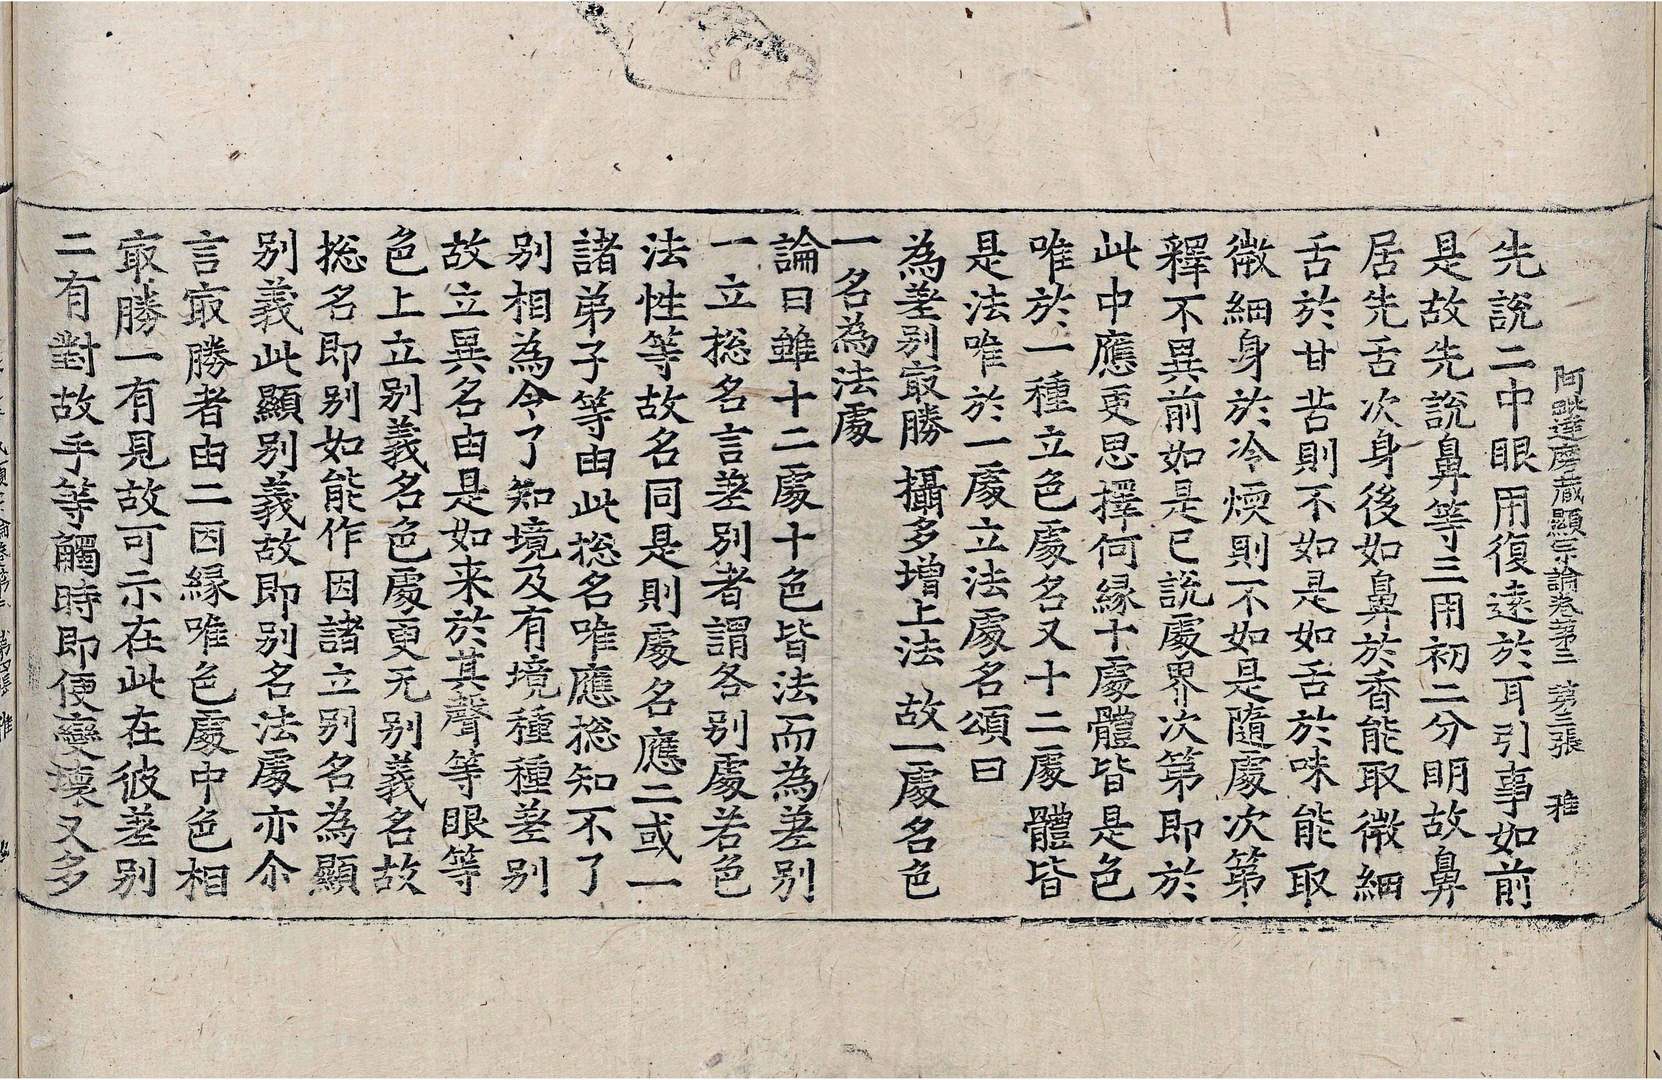 阿毗達磨藏顯宗論卷第三 第三張 雅
先說二中眼用復遠於耳引事如前
是故先說鼻等三用初二分明故鼻
居先舌次身後如鼻於香能取微細
舌於甘苦則不如是如舌於味能取
微細身於冷煗則不如是隨處次第
釋不異前如是已說處界次第即於
此中應更思擇何緣十處體皆是色
唯於一種立色處名又十二處體皆
是法唯於一處立法處名頌曰
為差別㝡勝 攝多增上法 故一處名色
一名為法處
論曰雖十二處十色皆法而為差別
一立捴名言差別者謂各別處若色
法性等故名同是則處名應二或一
諸弟子等由此捴名唯應捴知不了
別相為令了知境及有境種種差別
故立異名由是如来於其聲等眼等
色上立別義名色處更无別義名故
捴名即別如能作因諸立別名為顯
別義此顯別義故即別名法處亦尒
言㝡勝者由二因緣唯色處中色相
㝡勝一有見故可示在此在彼差別
二有對故手等觸時即便變壞又多